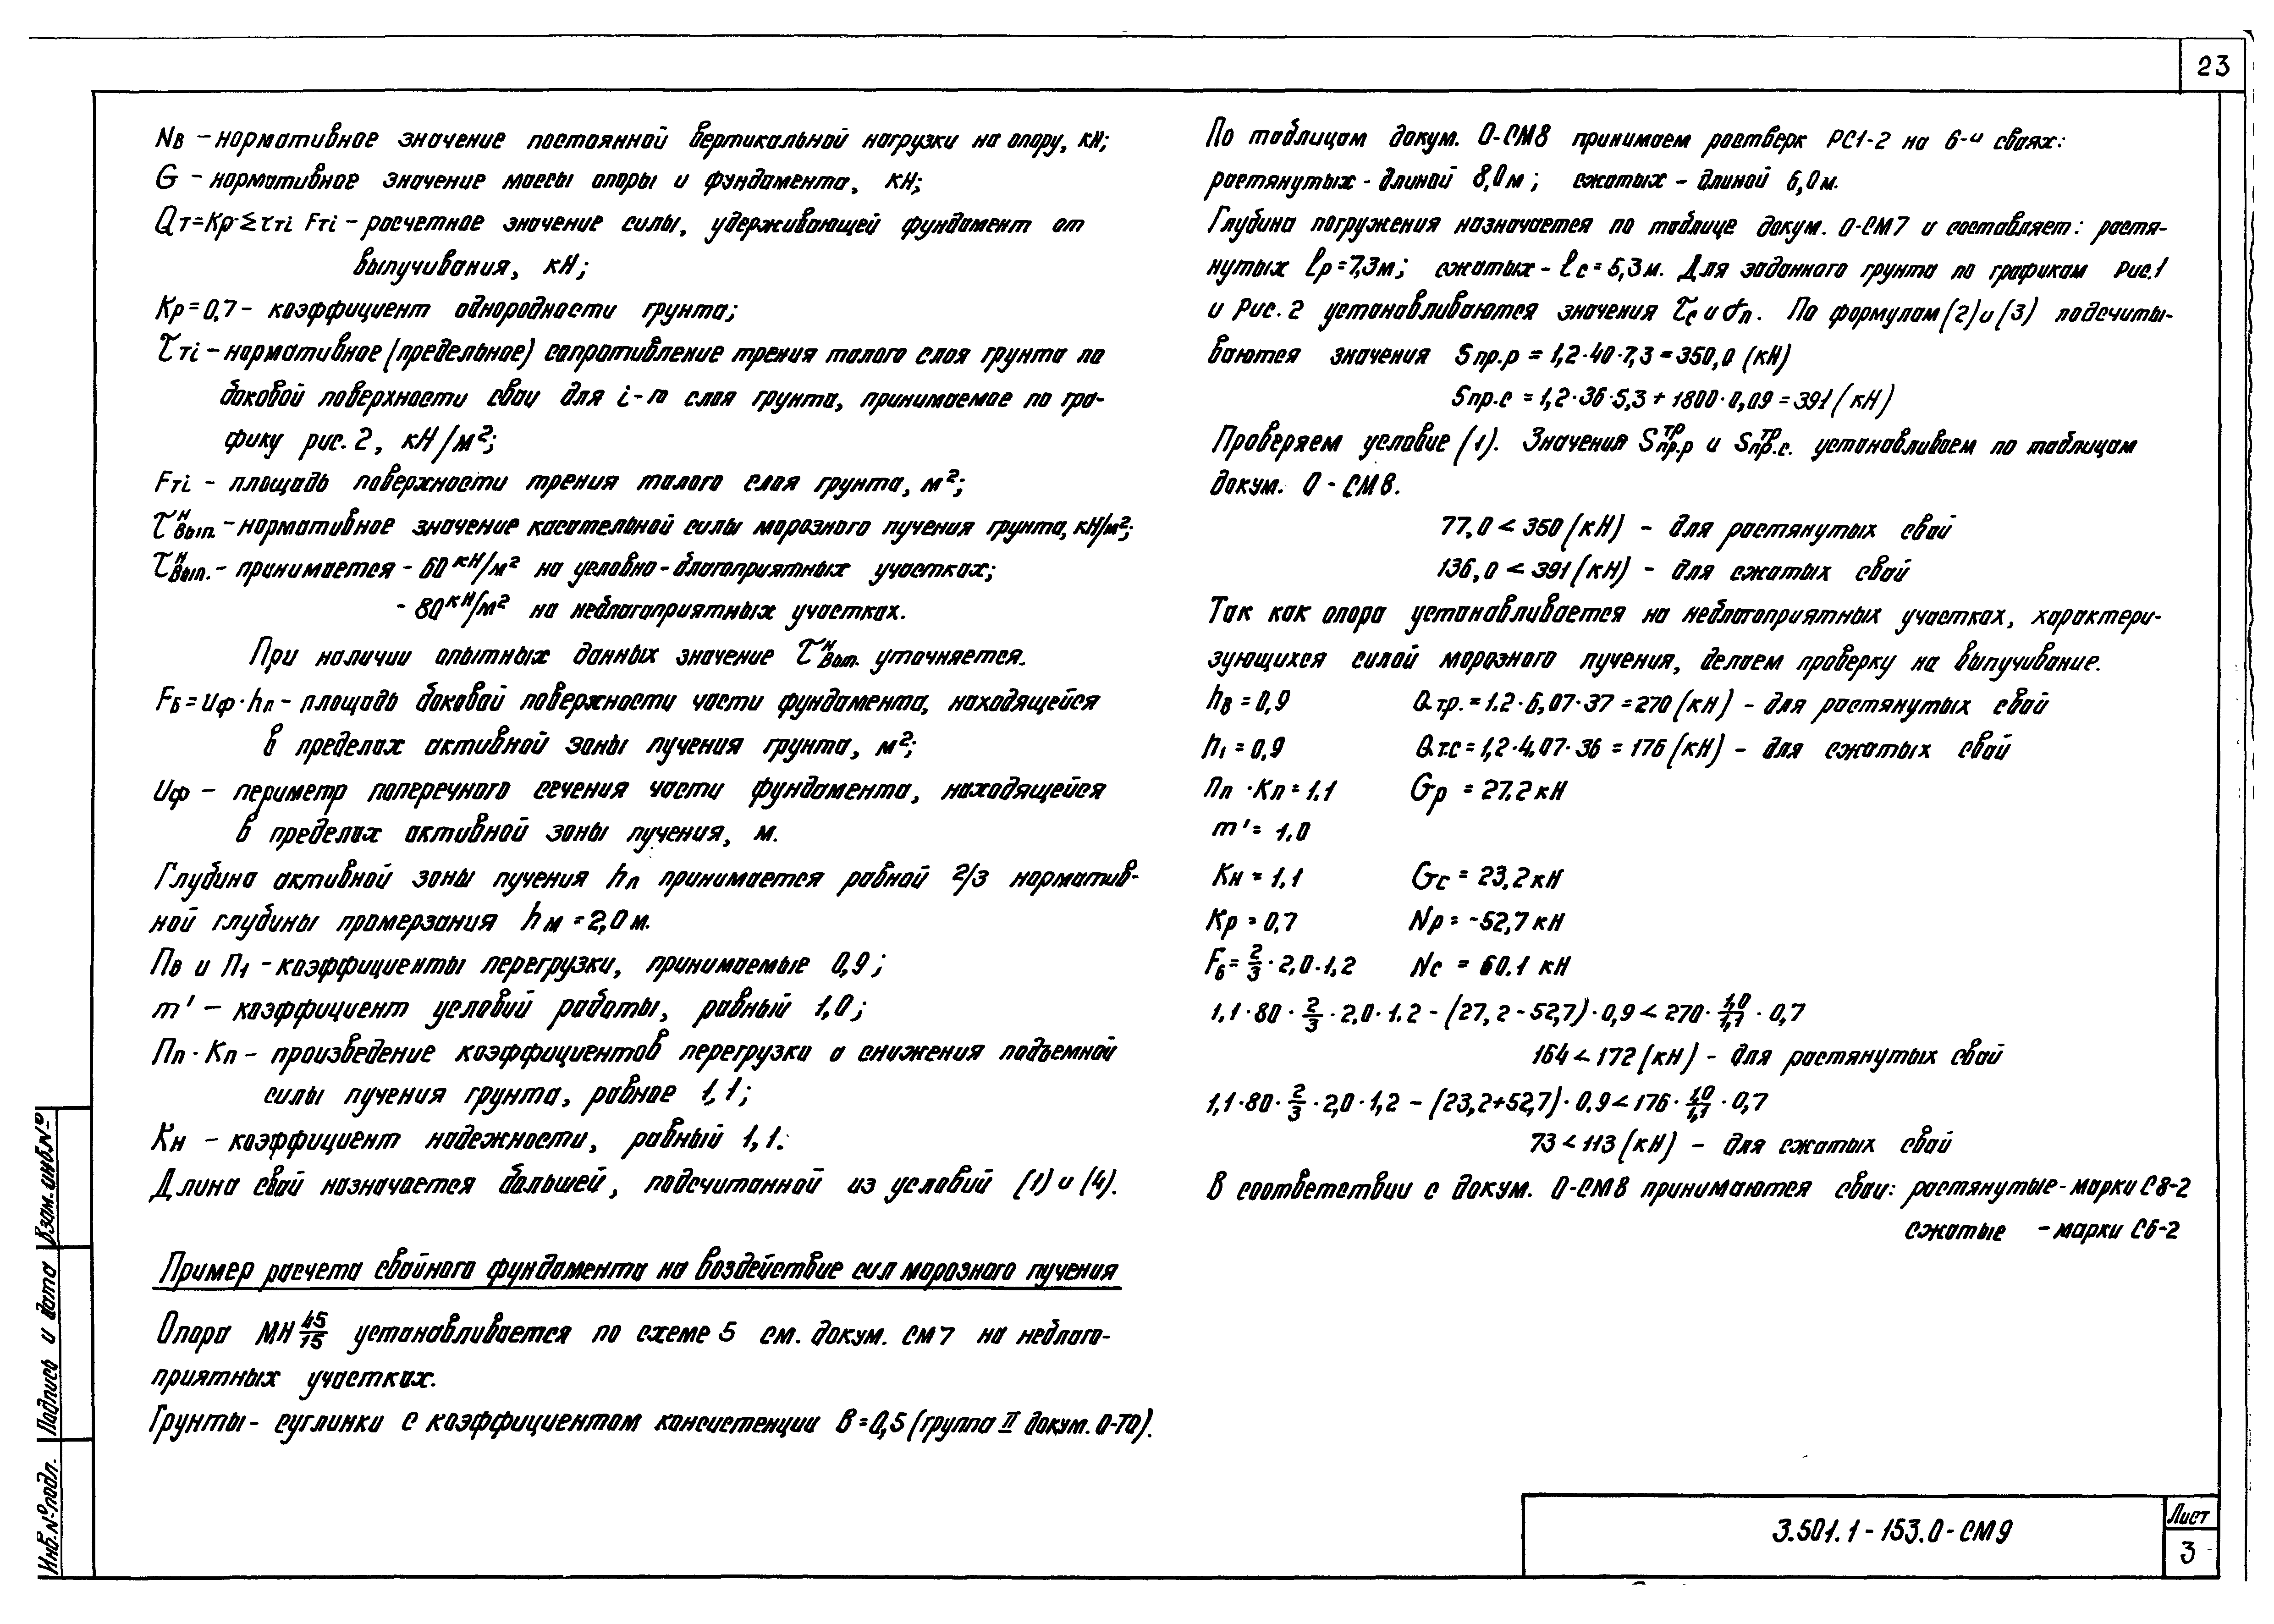 23
Nв – нормативное значение постоянной вертикальной нагрузки на опору, кН;
G – нормативное значение массы опоры и фундамента, кН;
Qт=Kр·Στтi Fтi – расчетное значение силы, удерживающей фундамент от
выпучивания, кН;
Kр=0,7 – коэффициент однородности грунта;
τтi – нормативное (предельное) сопротивление трения талого слоя грунта по
боковой поверхности сваи для i-го слоя грунта, принимаемое по гра-
фику рис. 2, кН/м²;
Fтi – площадь поверхности трения талого слоя грунта, м²;
τᴴвып. – нормативное значение касательной силы морозного пучения грунта, кН/м²;
τᴴвып. – принимается – 60 кН/м² на условно-благоприятных участках;
– 80 кН/м² на неблагоприятных участках.
При наличии опытных данных значение τᴴвып. уточняется.
Fб=Uф·hп – площадь боковой поверхности части фундамента, находящейся
в пределах активной зоны пучения грунта, м²;
Uф – периметр поперечного сечения части фундамента, находящейся
в пределах активной зоны пучения, м.
Глубина активной зоны пучения hп принимается равной 2/3 норматив-
ной глубины промерзания hм = 2,0 м.
Пв и П1 – коэффициенты перегрузки, принимаемые 0,9;
m' – коэффициент условий работы, равный 1,0;
Пп · Kп – произведение коэффициентов перегрузки и снижения подъемной
силы пучения грунта, равное 1,1;
Kн – коэффициент надежности, равный 1,1.
Длина свай назначается большей, подсчитанной из условий (1) и (4).
Пример расчета свайного фундамента на воздействие сил морозного пучения
Опора МН 45/15 устанавливается по схеме 5 см. докум. СМ7 на неблаго-
приятных участках.
Грунты – суглинки с коэффициентом консистенции В = 0,5 (группа II докум. 0-ТО).
По таблицам докум. 0-СМ8 принимаем ростверк РС1-2 на 6-и сваях:
растянутых – длиной 8,0 м; сжатых – длиной 6,0 м.
Глубина погружения назначается по таблице докум. 0-СМ7 и составляет: растя-
нутых lр = 7,3 м; сжатых – lс = 5,3 м. Для заданного грунта по графикам Рис.1
и Рис. 2 устанавливаются значения τс и σп. По формулам (2) и (3) подсчиты-
ваются значения Sпр.р = 1,2·40·7,3 = 350,0 (кН)
Sпр.с = 1,2·36·5,3 + 1800·0,09 = 391 (кН)
Проверяем условие (1). Значения Sᵀᴾпр.р и Sᵀᴾпр.с. устанавливаем по таблицам
докум. 0-СМ8.
77,0 < 350 (кН) – для растянутых свай
136,0 < 391 (кН) – для сжатых свай
Так как опора устанавливается на неблагоприятных участках, характери-
зующихся силой морозного пучения, делаем проверку на выпучивание.
hв = 0,9 Qтр. = 1.2·6,07·37 = 270 (кН) – для растянутых свай
h1 = 0,9 Qт.с = 1,2·4,07·36 = 176 (кН) – для сжатых свай
Пп · Kп = 1.1 Gр = 27.2 кН
m' = 1,0
Kн = 1,1 Gс = 23,2 кН
Kр = 0,7 Nр = -52,7 кН
Fб = 2/3 · 2,0 · 1,2 Nс = 60.1 кН
1,1·80 · 2/3 · 2,0 · 1.2 – (27,2 – 52,7) · 0,9 < 270 · 1,0/1,1 · 0,7
164 < 172 (кН) – для растянутых свай
1,1·80 · 2/3 · 2,0 · 1,2 – (23,2+52,7) · 0.9 < 176 · 1,0/1,1 · 0,7
73 < 113 (кН) – для сжатых свай
В соответствии с докум. 0-СМ8 принимаются сваи: растянутые – марки С8-2
сжатые – марки С6-2
Инв.№подл. Подпись и дата Взам.инв.№
3.501.1-153.0-СМ9
Лист
3